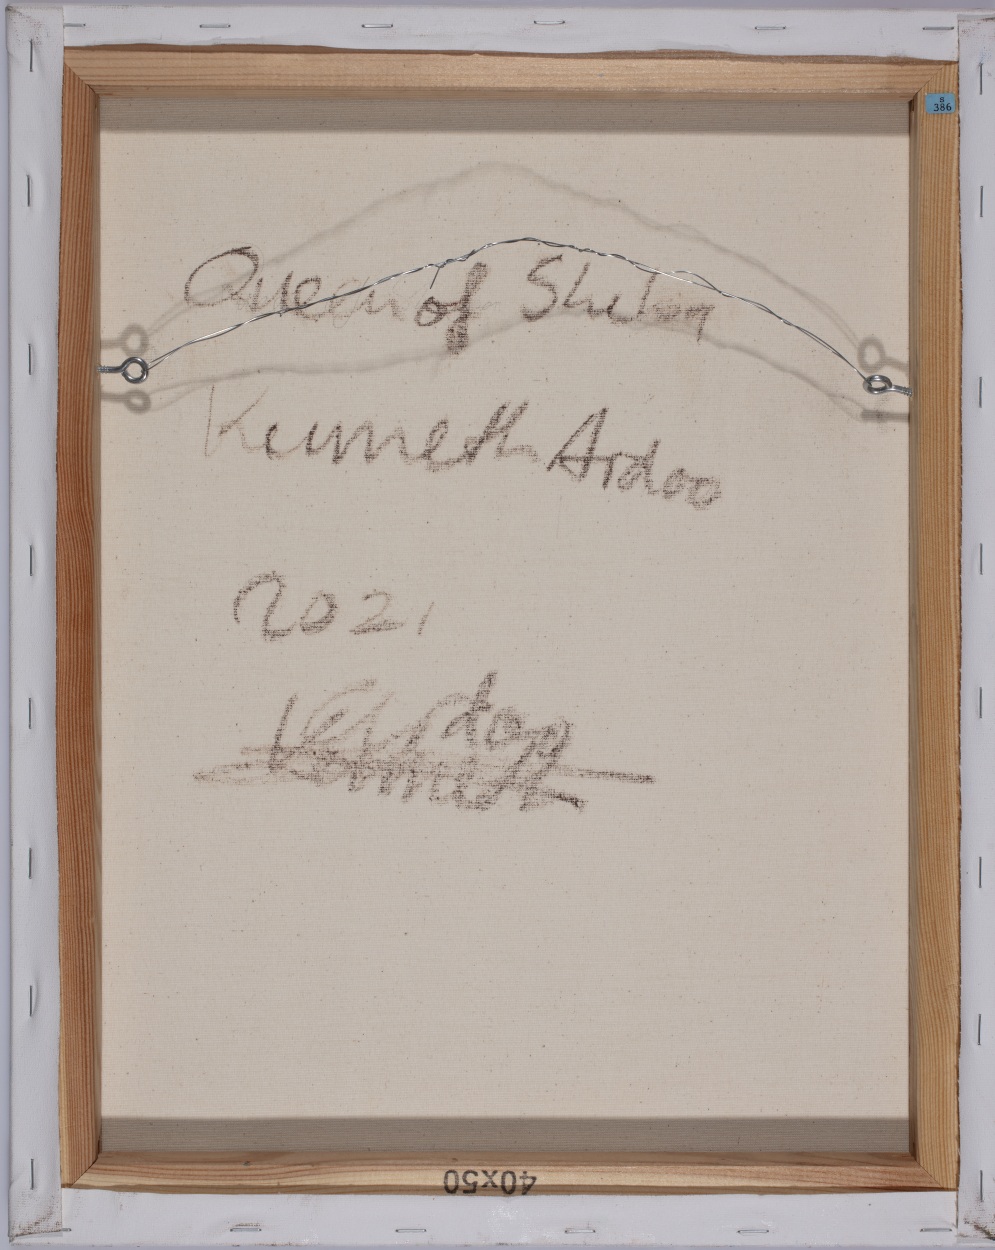 8
386
Queen of Sheba
Kenneth Ardoo
2021
40x50